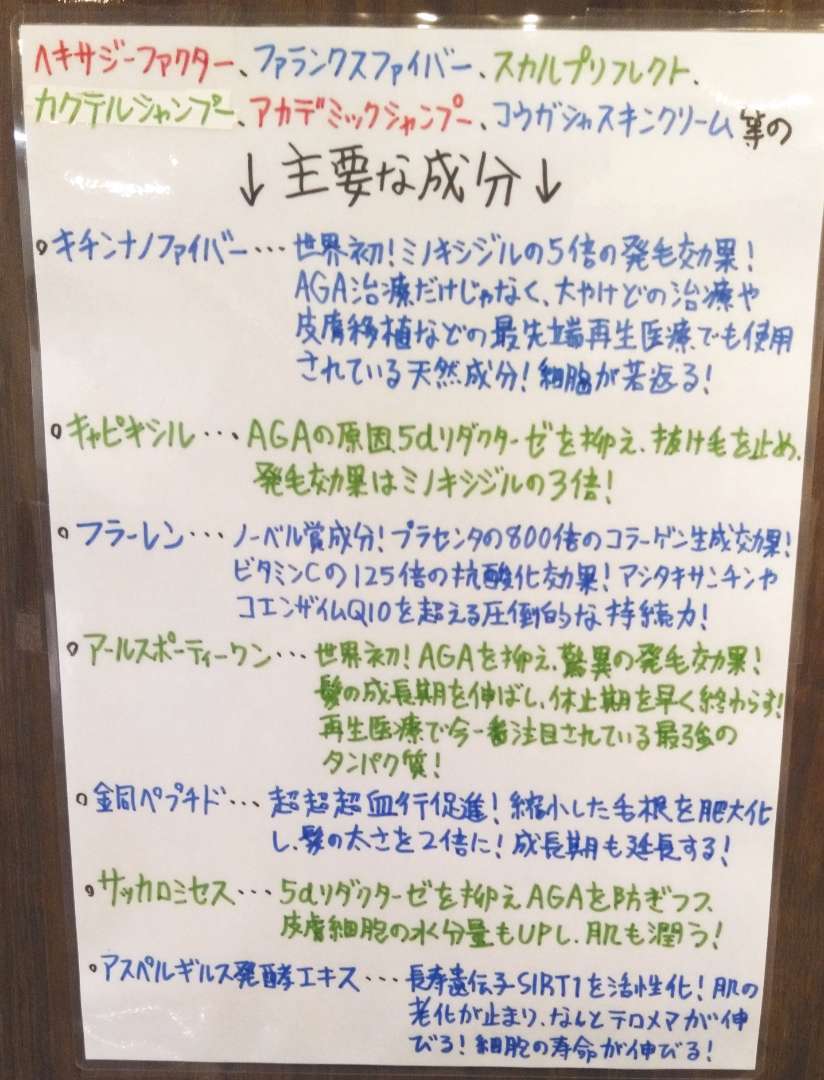 ヘキサジーファクター、ファランクスファイバー、スカルプリフレクト、
カクテルシャンプー、アカデミックシャンプー、コウガシャスキンクリーム等の
↓主要な成分↓
。キチンナノファイバー・・・世界初!ミノキシジルの5倍の発毛効果!
AGA治療だけじゃなく、大やけどの治療や
皮膚移植などの最先端再生医療でも使用
されている天然成分!細胞が若返る!
。キャピキシル・・・AGAの原因5αリダクターゼを抑え、抜け毛を止め、
発毛効果はミノキシジルの3倍!
。フラーレン・・・ノーベル賞成分!プラセンタの800倍のコラーゲン生成効果!
ビタミンCの125倍の抗酸化効果!アシタキサンチンや
コエンザイムQ10を超える圧倒的な持続力!
。アールスポーティーワン・・・世界初!AGAを抑え、驚異の発毛効果!
髪の成長期を伸ばし、休止期を早く終わらす!
再生医療で今一番注目されている最強の
タンパク質!
。金同ペプチド・・・超超超血行促進!縮小した毛根を肥大化
し、髪の太さを2倍に!成長期も延長する!
。サッカロミセス・・・5αリダクターゼを抑えAGAを防ぎつつ、
皮膚細胞の水分量もUPし、肌も潤う!
。アスペルギルス発酵エキス・・・長寿遺伝子SIRT1を活性化!肌の
老化が止まり、なんとテロメアが伸
びる!細胞の寿命が伸びる!